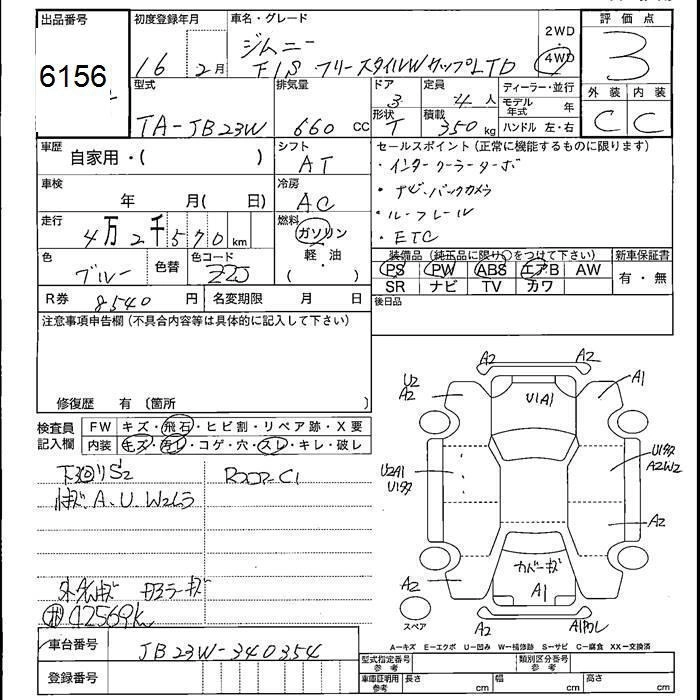 出品番号 初度登録年月 車名・グレード 2WD 評価点
6156 16 2月 ジムニー 4WD 3
FIS フリースタイルWカップLTD
型式 排気量 ドア 定員 ディーラー・並行 外装 内装
3 4人 モデル年式 年
TA-JB23W 660cc 形状 T 積載 350kg ハンドル 左・右 C C
車歴 シフト セールスポイント(正常に機能するものに限ります)
自家用・( ) AT ・インタークーラーターボ
車検 冷房 ・ナビ、バックカメラ
年 月( 日) AC ・ルーフレール
走行 燃料 ・ETC
4万2千570km ガソリン
軽油
( )
色 色替 色コード 装備品(純正品に限り○をつけて下さい) 新車保証書
ブルー Z2J PS PW ABS エアB AW 有・無
SR ナビ TV カワ
R券 8540円 名変期限 月 日 後日品
注意事項申告欄(不具合内容等は具体的に記入して下さい)
修復歴 有 〔箇所 〕
検査員 FW キズ・飛石・ヒビ割・リペア跡・X要
記入欄 内装 キズ・汚レ・コゲ・穴・スレ・キレ・破レ
下廻りS2 C1
A、U、W2
42569k
A2 A2
U2 A2 U1A1 A1
U2A1 A2W2
A2
カバーキズ
A2 A1
スペア A2
A-キズ E-エクボ U-凹み W-補修跡 S-サビ C-腐食 XX-交換済
車台番号 JB23W-340354
登録番号
型式指定番号 参考 類別区分番号 参考
車庫証明用 参考 長さ cm 幅 cm 高さ cm